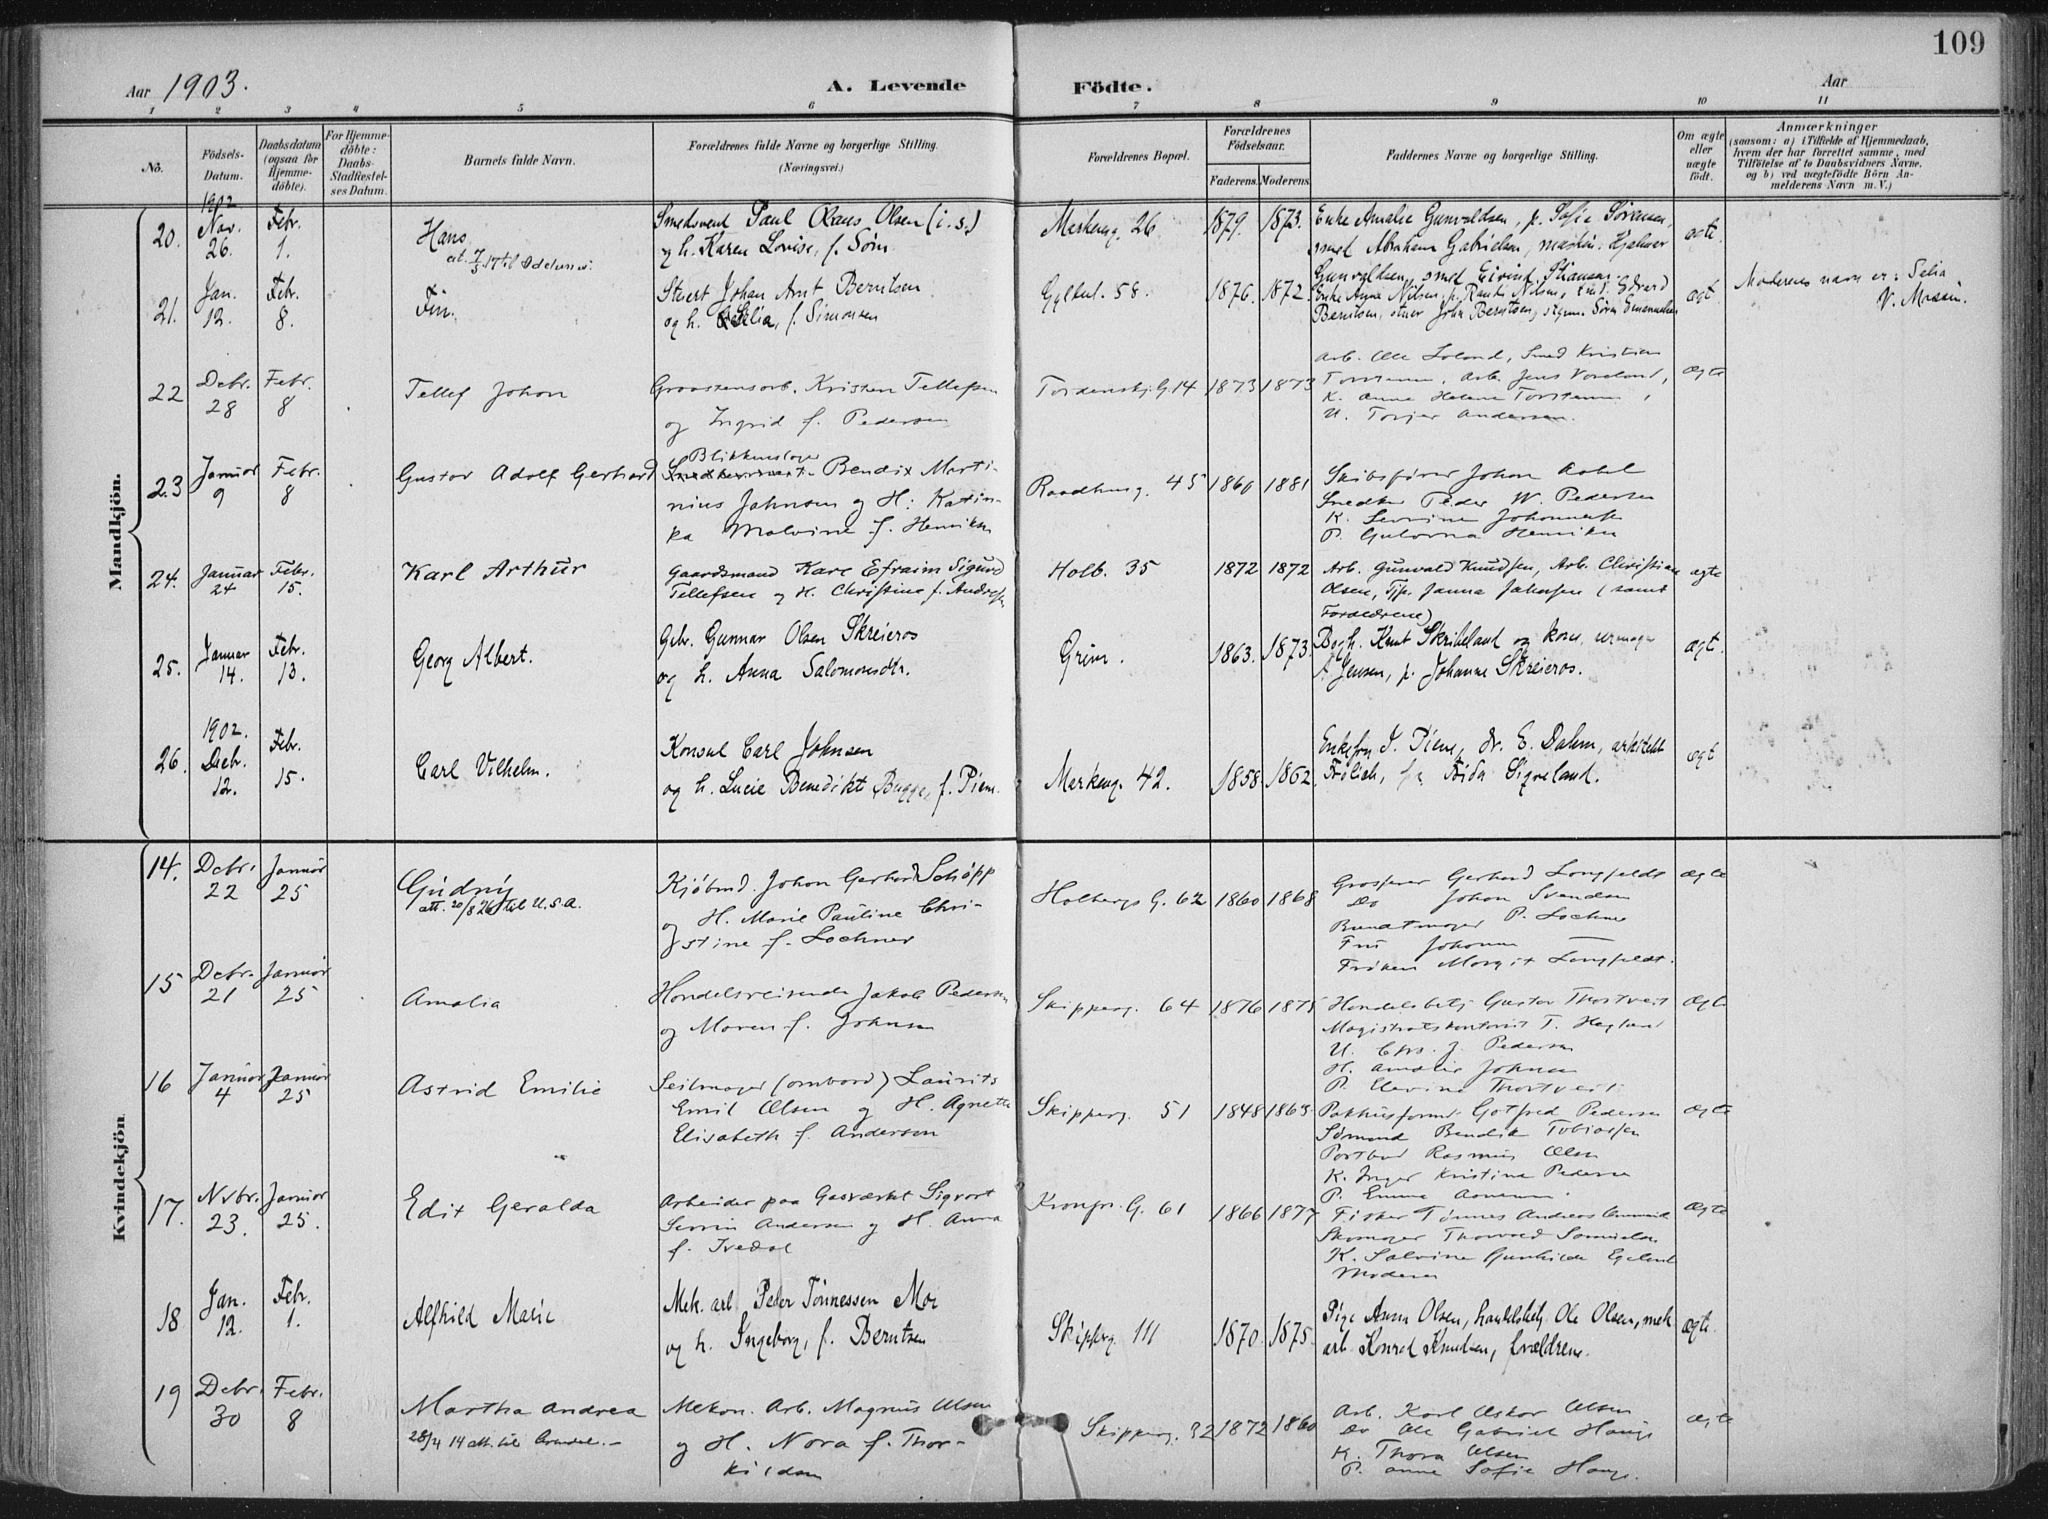 109
Aar 1903.
A. Levende Födte.
Aar
1 2 3 4 5 6 7 8 9 10 11
No.
Födsels-Datum.
Daabsdatum (ogsaa for Hjemme-döbte).
For Hjemme-döbte: Daabs-Stadfæstel-ses Datum.
Barnets fulde Navn.
Forældrenes fulde Navne og borgerlige Stilling.
(Næringsvei.)
Forældrenes Bopæl.
Forældrenes Födselsaar.
Faderens. Moderens.
Faddernes Navne og borgerlige Stilling.
Om ægte eller uægte födt.
Anmærkninger
(saasom: a) i Tilfælde af Hjemmedaab, hvem der har forrettet samme, med Tilföielse af to Daabsvidners Navne, og b) ved uægtefödte Börn An-melderens Navn m. V.)
Mandkjön.
20. 1902 Nov. 26. Febr. 1.
Hans
Smedsvend Paul Olaus Olsen (i.s.)
og h. Karen Lovise, f. Sørn
Markeng. 26. 1879. 1873.
Enke Amalie Gunvaldsen, p. Sofie Sørensen,
smed Abraham Gabrielsen, maskin. Hjalmar
Gunvaldsen, smed Eivind
ægte.
21. Jan. 12. Febr. 8.
Fin.
Stuert Johan Arnt Berntsen
og h. Selia, f. Simonsen
Gyldenl. 58. 1876. 1872.
Enke Anne Nilsen, p. Randi Nilsen, Edvard
Berntsen, John Berntsen, Sørn Emanuelsen
ægt.
Moderens navn er: Selia
22 Debr. 28 Febr. 8
Tellef Johan
Graastensarb. Kristen Tellefsen
og Ingrid f. Pedersen
Tordenskj. G. 14 1873 1873
Arb. Ole Loland, Smed Kristian
Arb. Jens
K. Anne Helene
U. Torjer Andersen.
ægte
23 Januar 9 Febr. 8
Gustav Adolf Gerhard
Blikkenslager
Bendix Marti-
nius Johnsen og H. Katin-
ka Malvine f. Henriksen
Raadhusg. 45 1860 1881
Skibsfører Johan
Snedker Peder W. Pedersen
K. Severine
P. Henriksen
24. Januar 24 Febr. 15.
Karl Arthur
Gaardsmand Karl Efraim Sigurd
Tellefsen og H. Christine f. Andresen
Holb. 35 1872 1872
Arb. Gunvald Knudsen, Arb. Christian
Olsen, Tjp. Janna Johnsen (samt
Forældrene)
ægte
25. Januar 14. Febr. 13.
Georg Albert.
Gbr. Gunnar Olsen Skreieros
og h. Anna Salomonsdtr.
Grim. 1863. 1873.
Bogh. Knut Skribeland og kone, urmager
A. Jensen, p. Johanne Skreieros.
ægt.
26. 1902. Debr. 12. Febr. 15.
Carl Vilhelm.
Konsul Carl Johnsen
og h. Lucie Benedikte Bugge, f. Piene
Markeng. 42. 1858 1862.
Enkefru J. Piene, dr. E. Dahm, arkitekt
Frölich, Frida Sigveland.
ægt
Kvindekjön
14. Debr. 22 Januar 25
Gudny
att. 20/8 26 til U.S.A.
Kjøbmd. Johan Gerhard Schöpp
og H. Marie Pauline Chri-
stine f. Lochner
Holbergs G. 62 1860 1868
Grosserer Gerhard Longfeldt
Do Johan Svendsen
Buntmager P. Lochner
Fru Johanne —
Frøken Margit Longfeldt.
ægte
15 Debr. 21 Januar 25
Amalia
Handelsreisende Jakob Pedersen
og Maren f. Johnsen
Skipperg. 64 1876 1875
Handelsbetj Gustav Thortveit
Magistratskontorist T.
U. Chrs. J. Pedersen
H. Amalie Johnsen
P. Elevine Thortveit
ægte
16 Januar 4 Januar 25
Astrid Emilie
Seilmager (ombord) Laurits
Emil Olsen og H. Agnethe
Elisabeth f. Andersen
Skipperg. 51 1848 1863
Pakhusformd. Gotfred Pedersen
Sømand Bendik Tobiassen
Portbud Rasmus Olsen
K. Inger Kristine Pedersen
P. Emma
ægte
17. Nvbr. 23. Januar 25.
Edit Geralda
Arbeider paa Gasværket Sigvart
Severin Andersen og H. Anna
f. Ivedal
Kronpr. G. 61 1866 1877
Fisker Tønnes Andreas
Skomager Thorvald Samuelsen
K. Salvine Gunhilde Egeland
Moderen
ægte
18 Jan. 12. Febr. 1.
Alfhild Marie
Mek. arb. Peder Tönnessen Moe
og h. Ingeborg, f. Berntsen
Skipperg. 111 1870 1875.
Pige Anna Olsen, handelsbetj. Ole Olsen, mek.
arb. Konrad Knudsen, forældrene.
ægte.
19 Debr. 30 Febr. 8
Martha Andrea
28/4 14 att. til Arendal.
Mekan. Arb. Magnus Olsen
og H. Nora f. Thor-
kildsen
Skipperg. 32 1872 1860
Arb. Karl Oskar Olsen
Do Ole Gabriel Hauge
K. Thora Olsen
P. Anne Sofie Hauge.
ægte